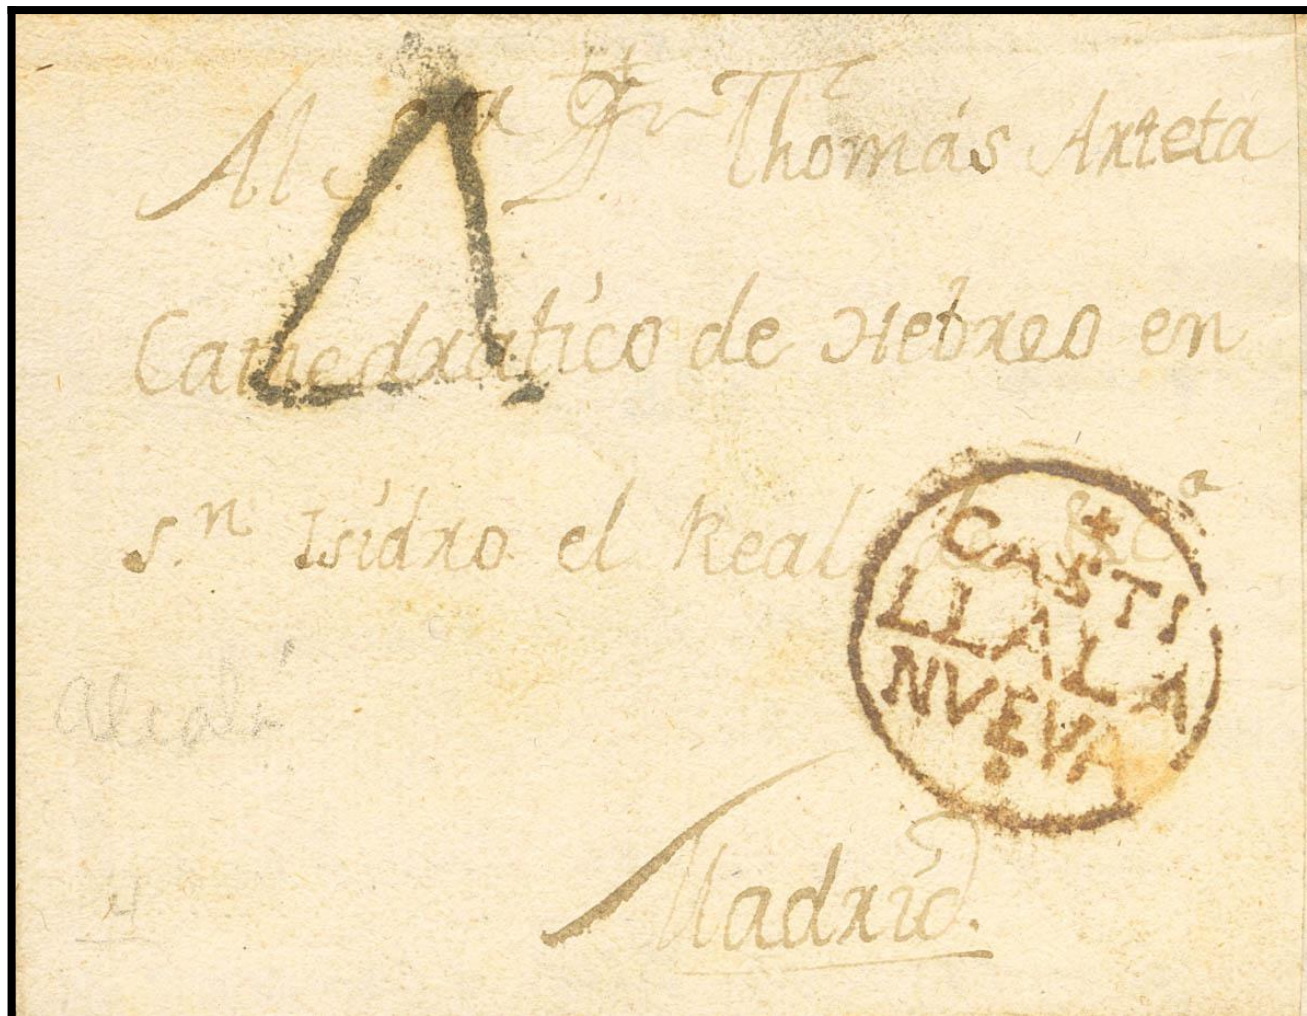 Al Thomás Arteta
Cathedratico de Hebreo en
S.n Isidro el Real de &c.a
CASTI
LLALA
NVEVA
Alcalá
Madrid.
4